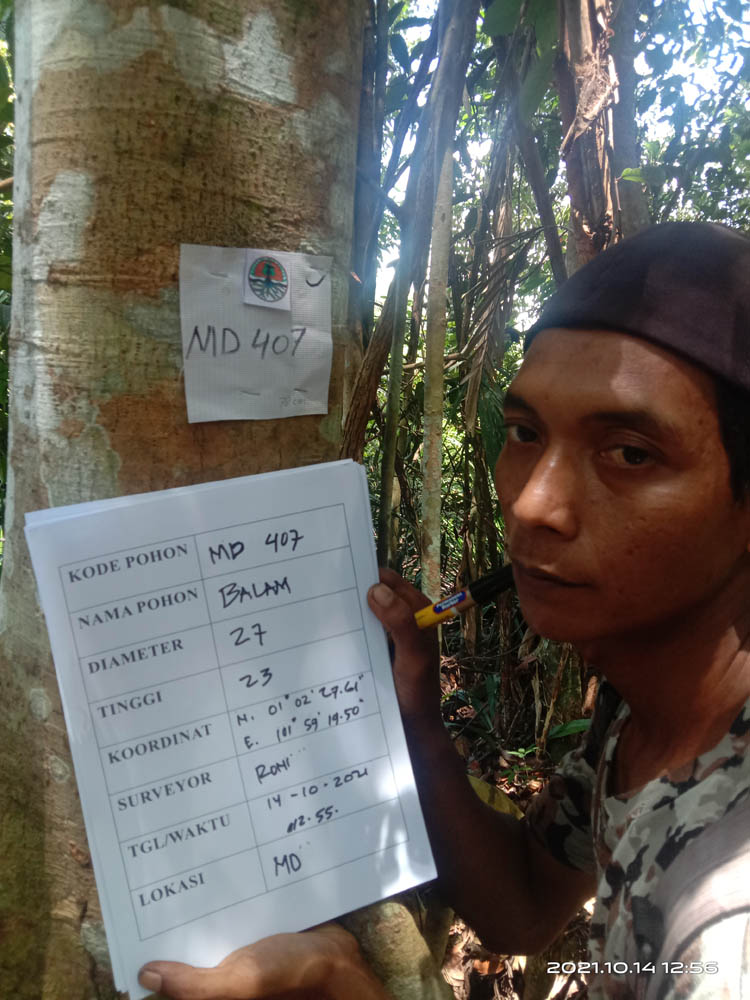 MD 407
KODE POHON MD 407
NAMA POHON BALAM
DIAMETER 27
TINGGI 23
KOORDINAT N. 01° 02' 27.61"
E. 101° 59' 19.50"
SURVEYOR RONI
TGL/WAKTU 14-10-2021
12.55.
LOKASI MD
2021.10.14 12:56